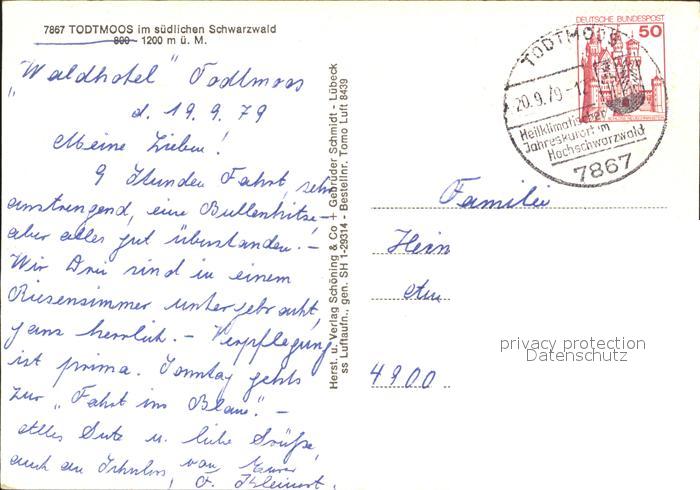 7867 TODTMOOS im südlichen Schwarzwald
800 - 1200 m ü. M.
"Waldhotel" Todtmoos
d. 19.9.79
Meine Lieben!
9 Stunden Fahrt, sehr
anstrengend, eine Bullenhitze -
aber alles gut überstanden. -
Wir Drei sind in einem
Riesenzimmer untergebracht,
ganz herrlich. - Verpflegung
ist prima. Sonntag gehts
zur "Fahrt ins Blaue". -
Alles Gute u. liebe Grüße,
auch an
von Eurer
Herst. u. Verlag Schöning & Co + Gebrüder Schmidt - Lübeck
ss Luftaufn., gen. SH 1-29314 - Bestellnr. Tomo Luft 8439
DEUTSCHE BUNDESPOST
50
TODTMOOS
20.9.79-1
Heilklimatischer
Jahreskurort im
Hochschwarzwald
7867
Familie
Hein
4900
privacy protection
Datenschutz